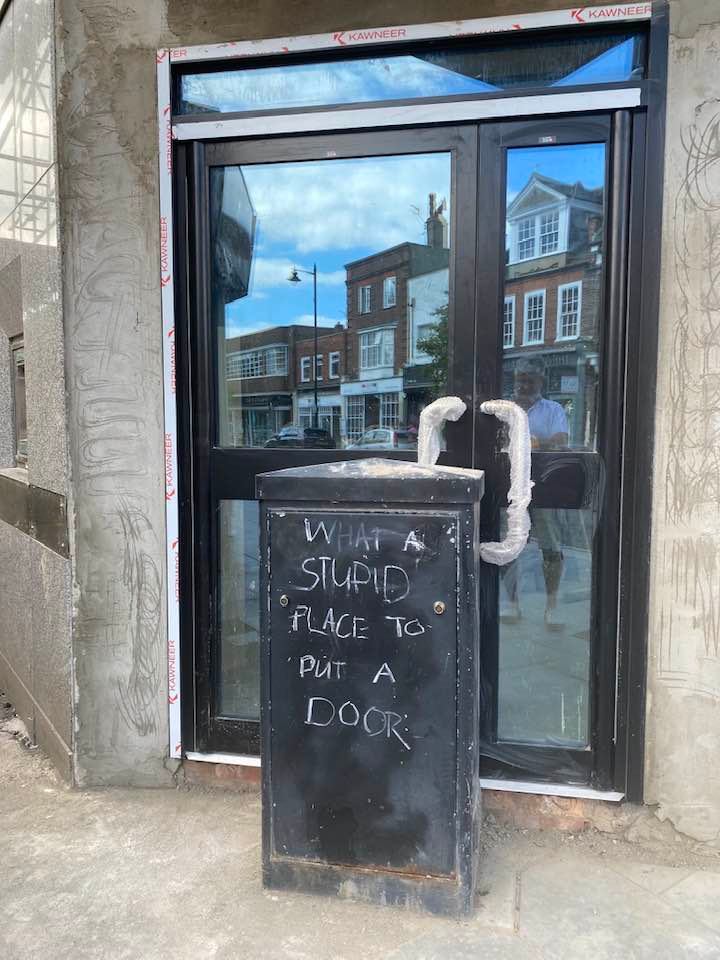 KAWNEER
KAWNEER
KAWNEER
KAWNEER
KAWNEER
KAWNEER
KAWNEER
WHAT A
STUPID
PLACE TO
PUT A
DOOR